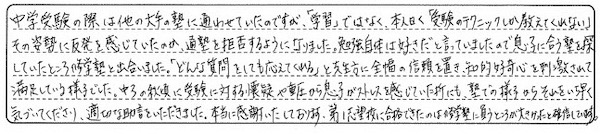 中学受験の際は他の大手の塾に通わせていたのですが、「学習」ではなく、本人曰く「受験のテクニックしか教えてくれない」
その姿勢に反発を感じていたのか、通塾を拒否するようになりました。勉強自体は好きだと言っていましたので息子に合う塾を探
していたところ修学塾と出合いました。「どんな質問をしても応えてくれる」と先生方に全幅の信頼を置き、知的好奇心を刺激されて
満足している様子でした。中3の秋頃に受験に対する懐疑や重圧から息子がストレスを感じていた折にも、塾での様子からそれをいち早く
気づいてくださり、適切な助言をいただきました。本当に感謝いたしております。第1志望校に合格できたのは修学塾に負うところが大きかったと確信しています。